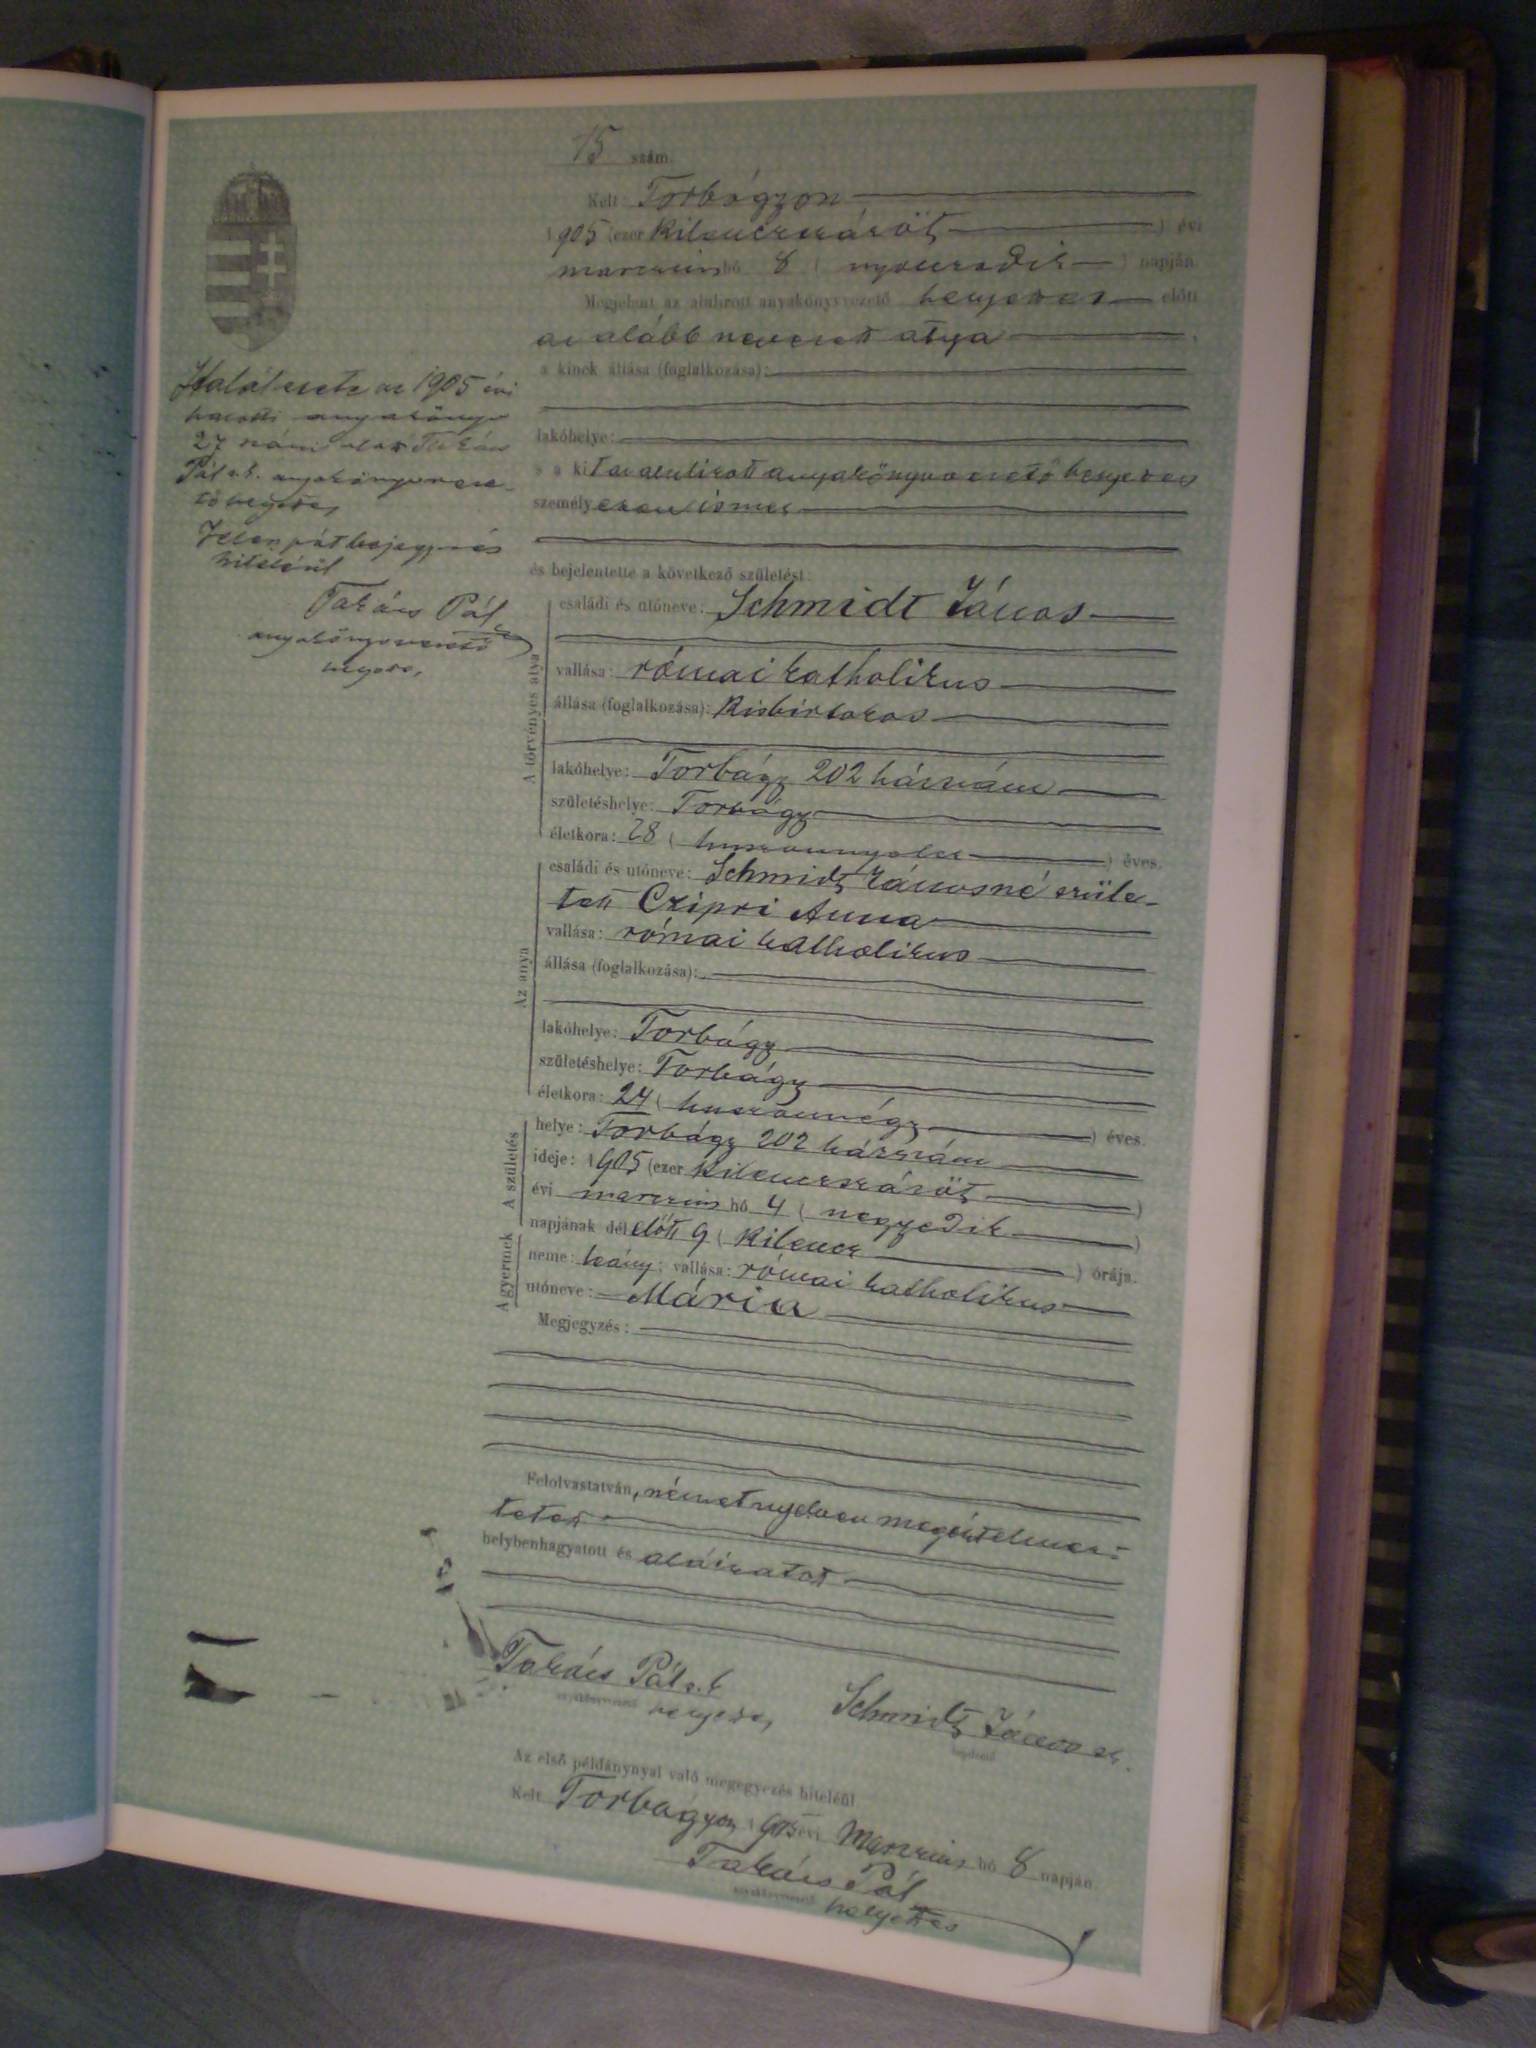 15 szám.
Kelt: Torbágyon
1905 (ezer kilenczszázöt) évi
marczius hó 8 (nyolczadik) napján.
Megjelent az alulirott anyakönyvvezető helyettes előtt
az alább nevezett atya
a kinek állása (foglalkozása):
lakóhelye:
s a kit az alulirott anyakönyvvezető helyettes
személyesen ismer
és bejelentette a következő születést:
A törvényes atya
családi és utóneve: Schmidt János
vallása: római katholikus
állása (foglalkozása): kisbirtokos
lakóhelye: Torbágy 202 házszám
születéshelye: Torbágy
életkora: 28 (huszonnyolcz) éves.
Az anya
családi és utóneve: Schmidt Jánosné szüle-
tett Czipri Anna
vallása: római katholikus
állása (foglalkozása):
lakóhelye: Torbágy
születéshelye: Torbágy
életkora: 24 (huszonnégy) éves.
A születés
helye: Torbágy 202 házszám
ideje: 1905 (ezer kilenczszázöt)
évi marczius hó 4 (negyedik)
napjának délelőtt 9 (kilencz) órája.
A gyermek
neme: leány; vallása: római katholikus
utóneve: Mária
Megjegyzés:
Felolvastatván, német nyelven megértelmez-
tetett
helybenhagyatott és aláiratott
Takács Pál s. k.
anyakönyvvezető helyettes
Schmidt János sk.
bejelentő
Az első példánynyal való megegyezés hiteléül
Kelt Torbágyon 1905 évi Marczius hó 8 napján.
Takács Pál
anyakönyvvezető helyettes
Halálesete az 1905 évi
halotti anyakönyv
27 szám alatt Takács
Pál s. k. anyakönyvveze-
tő helyettes
Jelen utóbejegyzés
hiteléül
Takács Pál
anyakönyvvezető
helyettes